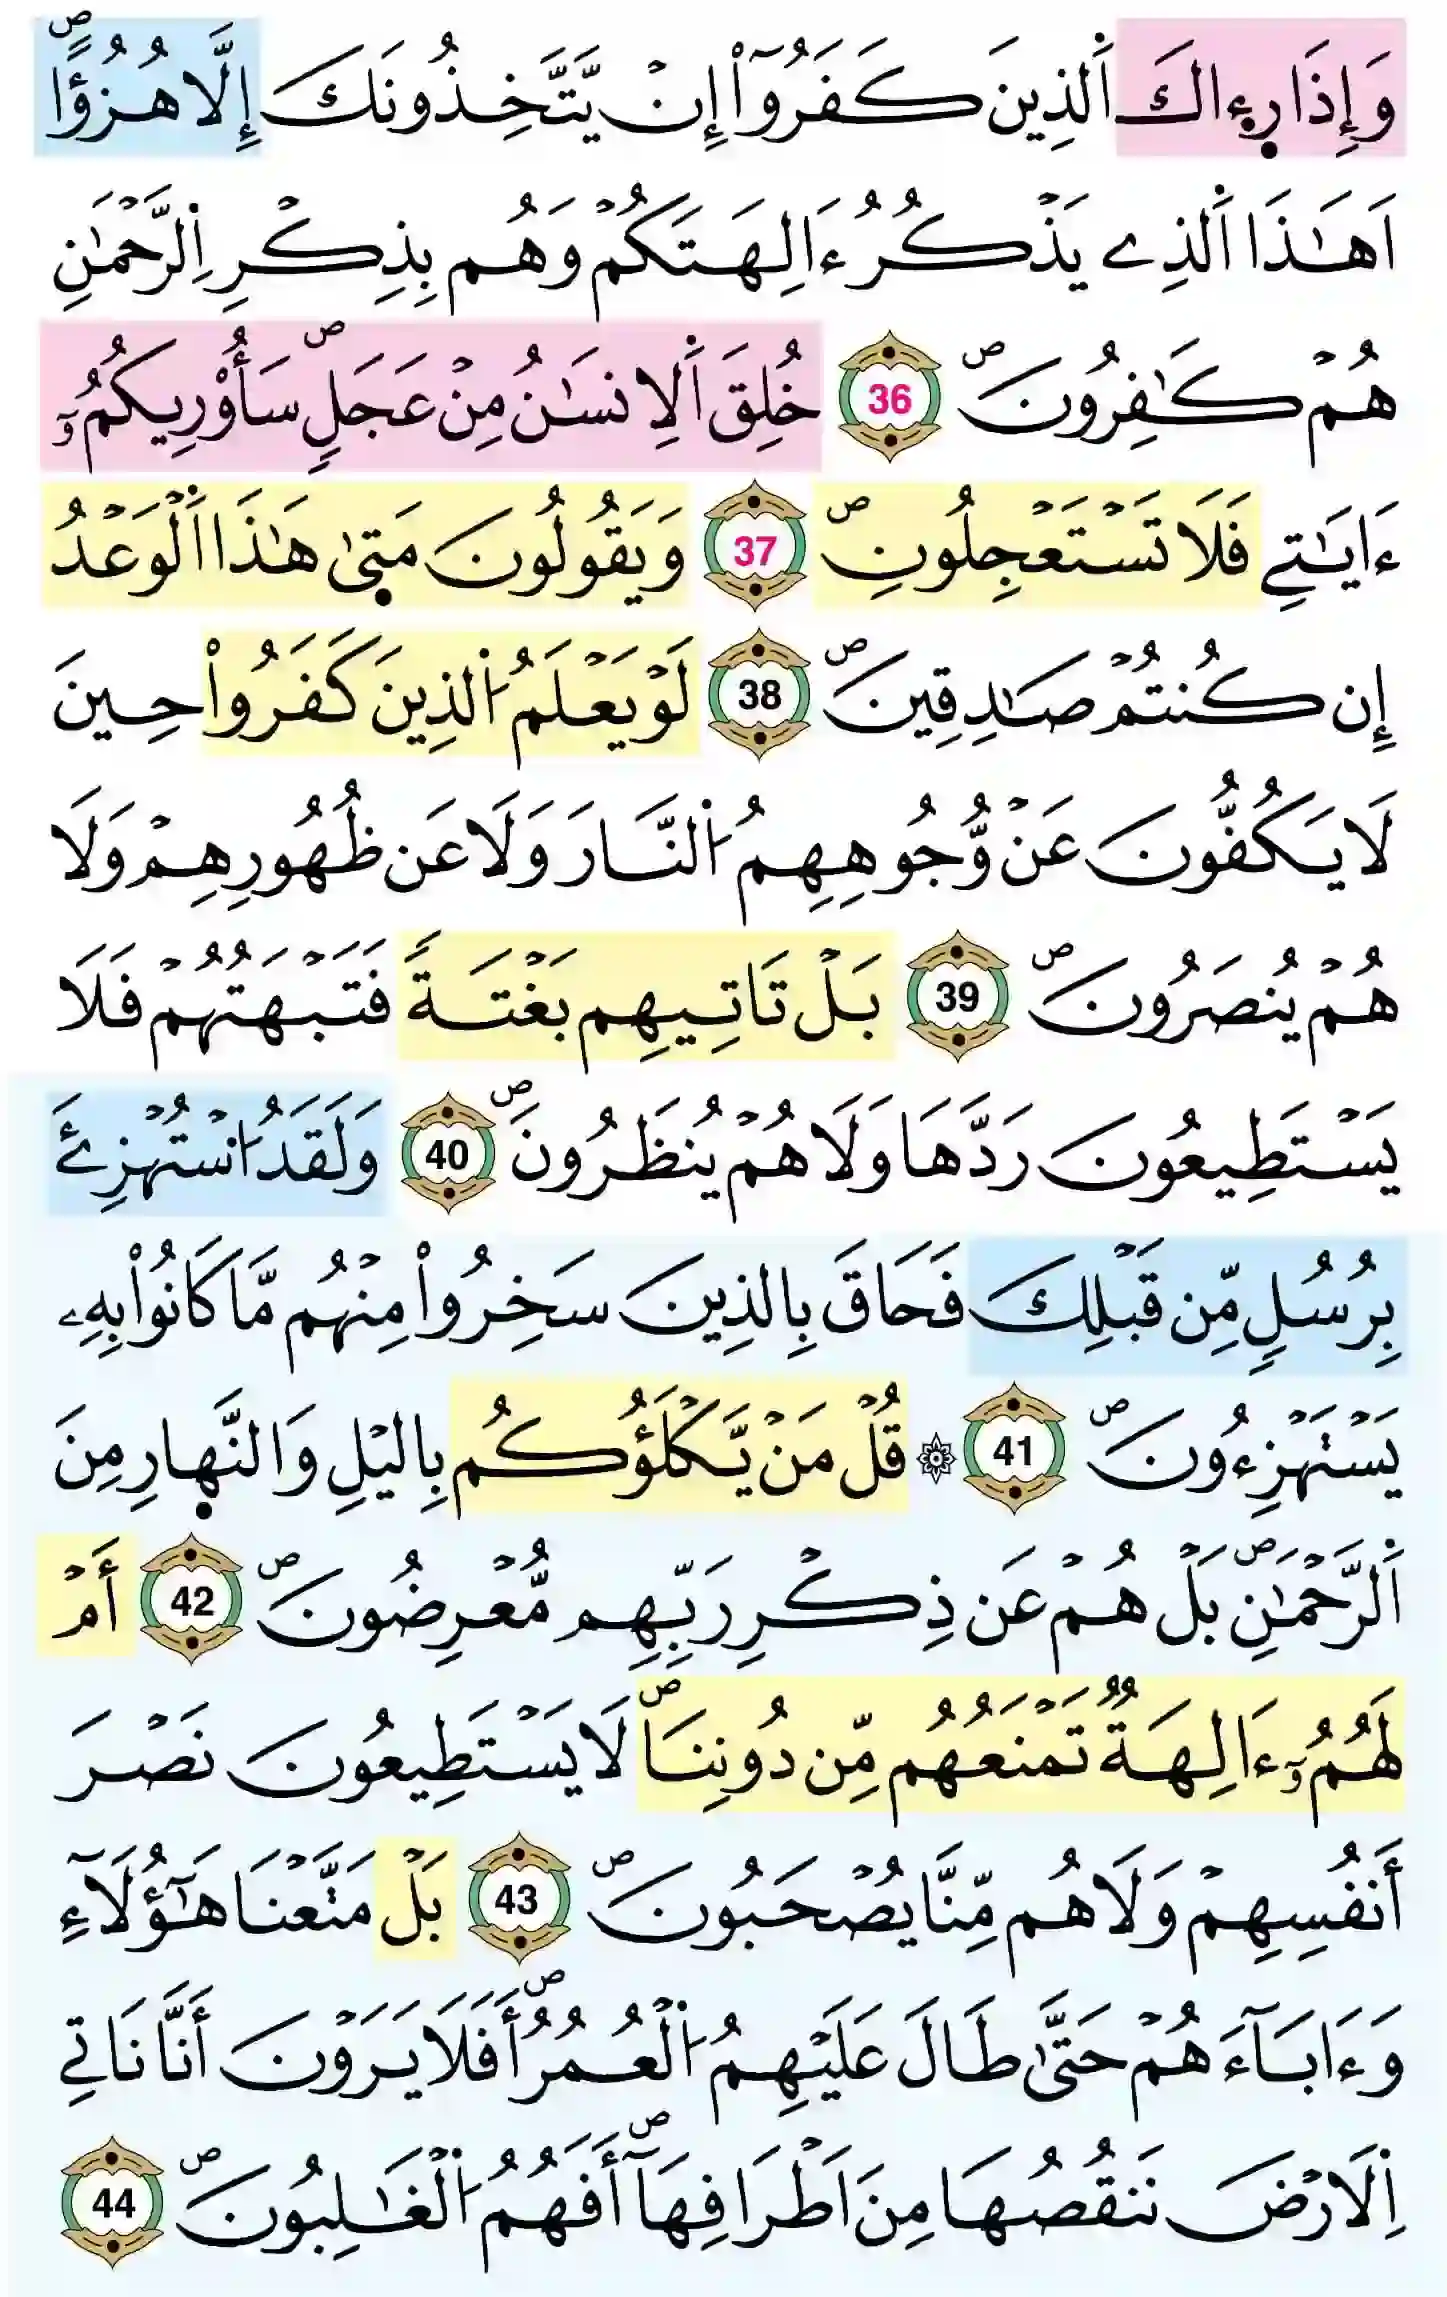 وَإِذَا رِءَاكَ اَ۬لذِينَ كَفَرُوٓاْ إِنْ يَّتَّخِذُونَكَ إِلَّا هُزُؤاًۖ
اَهَٰذَا اَ۬لذِے يَذْكُرُ ءَالِهَتَكُمْ وَهُم بِذِكْرِ اِ۬لرَّحْمَٰنِ
هُمْ كَٰفِرُونَۖ 36 خُلِقَ اَ۬لِانسَٰنُ مِنْ عَجَلٖۖ سَأُوْرِيكُمُۥٓ
ءَايَٰتِے فَلَا تَسْتَعْجِلُونِۖ 37 وَيَقُولُونَ مَتىٰ هَٰذَا اَ۬لْوَعْدُ
إِن كُنتُمْ صَٰدِقِينَۖ 38 لَوْ يَعْلَمُ اُ۬لذِينَ كَفَرُواْ حِينَ
لَا يَكُفُّونَ عَنْ وُّجُوهِهِمُ اُ۬لنَّارَ وَلَا عَن ظُهُورِهِمْ وَلَا
هُمْ يُنصَرُونَۖ 39 بَلْ تَاتِيهِم بَغْتَةً فَتَبْهَتُهُمْ فَلَا
يَسْتَطِيعُونَ رَدَّهَا وَلَا هُمْ يُنظَرُونَۖ 40 وَلَقَدُ اُ۟سْتُهْزِئَ
بِرُسُلٖ مِّن قَبْلِكَ فَحَاقَ بِالذِينَ سَخِرُواْ مِنْهُم مَّا كَانُواْ بِهِۦ
يَسْتَهْزِءُونَۖ 41 ۞ قُلْ مَنْ يَّكْلَؤُكُم بِاليْلِ وَالنَّهِارِ مِنَ
اَ۬لرَّحْمَٰنِۖ بَلْ هُمْ عَن ذِكْرِ رَبِّهِم مُّعْرِضُونَۖ 42 أَمْ
لَهُمُۥٓ ءَالِهَةٞ تَمْنَعُهُم مِّن دُونِنَاۖ لَا يَسْتَطِيعُونَ نَصْرَ
أَنفُسِهِمْ وَلَا هُم مِّنَّا يُصْحَبُونَۖ 43 بَلْ مَتَّعْنَا هَٰٓؤُلَآءِ
وَءَابَآءَهُمْ حَتَّىٰ طَالَ عَلَيْهِمُ اُ۬لْعُمُرُۖ أَفَلَا يَرَوْنَ أَنَّا نَاتِے
اِ۬لَارْضَ نَنقُصُهَا مِنَ اَطْرَافِهَآۖ أَفَهُمُ اُ۬لْغَٰلِبُونَۖ 44